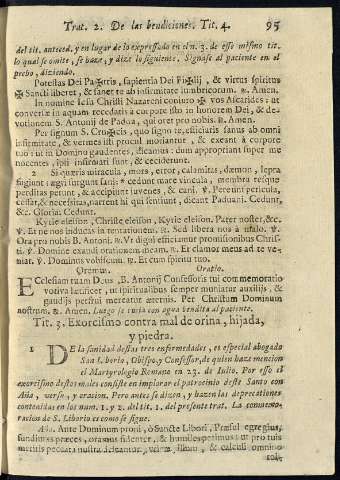 Trat. 2. De las bendiciones. Tit. 4. 95
del tit. anteced. y en lugar de lo expressado en el n. 3. de esse mismo tit.
lo qual se omite, se haxa, y dize lo siguiente. Signase al paciente en el
pecho, diziendo.
Potestas Dei Pa✠tris, sapientia Dei Fi✠lij, & virtus spiritus
✠ Sancti liberet, & sanet te ab infirmitate lumbricorum. ℟. Amen.
In nomine Iesu Christi Nazareni coniuro ✠ vos Ascarides: ut
conversæ in aquam recedatis à corpore isto in honorem Dei, & de
votionem S. Antonij de Padua, qui oret pro nobis. ℟. Amen.
Per signum S. Cru✠cis, quo signo te, efficiaris sanus ab omni
infirmitate, & vermes isti procul moriantur, & exeant à corpore
tuo: ut in Domino gaudentes, dicamus: dum appropriant super me
nocentes, ipsi infirmati sunt, & ceciderunt.
2 Si quæris miracula, mors, error, calamitas, dæmon, lepra
fugiunt: ægri surgunt sani: * cedunt mare vincula, membra resque
perditas petunt, & accipiunt juvenes, & cani. ℣. Pereunt pericula,
cessat, & necessitas, narrent hi qui sentiunt, dicant Paduani. Cedunt,
&c. Gloria: Cedunt.
Kyrie eleison, Christe eleison, Kyrie eleison. Pater noster, &c.
℣. Et ne nos inducas in tentationem. ℟. Sed libera nos à malo. ℣.
Ora pro nobis B. Antoni. ℟. Vt digni efficiamur promissionibus Christi.
℣. Domine exaudi orationem meam. ℟. Et clamor meus ad te veniat.
℣. Dominus vobiscum. ℟. Et cum spiritu tuo.
Oremus. Oratio.
Ecclesiam tuam Deus, B. Antonij Confessoris tui commemoratio
votiva lætificet, ut spiritualibus semper muniatur auxilijs, &
gaudijs perfrui mereatur æternis. Per Christum Dominum
nostrum. ℟. Amen. Luego se rocia con agua bendita al paciente.
Tit. 5. Exorcismo contra mal de orina, hijada,
y piedra.
1 DE la sanidad destas tres enfermedades, es especial abogado
San Liborio, Obispo, y Confessor, de quien haze mencion
el Martyrologio Romano en 23. de Iulio. Por esso el
exorcismo destos males consiste en implorar el patrocinio deste Santo con
Aña, verso, y oracion. Pero antes se dizen, y hazen las deprecationes
contenidas en los num. 1. y 2. del tit. 1. del presente trat. La commemoracion
de S. Liborio es como se sigue.
Aña. Ante Dominum proni, ò Sancte Libori, Præsul egregius,
fundimus preces, oramus fidenter, & humiles petimus: ut pro tuis
meritis peccata nostra & calculi omnino
tol-